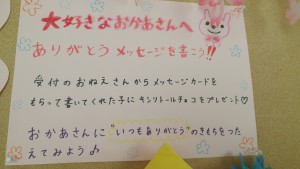 大好きなおかあさんへ
ありがとう メッセージを書こう!!
受付のおねえさんからメッセージカードを
もらって書いてくれた子にキンリトールチョコをプレゼント♡
おかあさんに"いつもありがとう"のきもちをつた
えてみよう♪